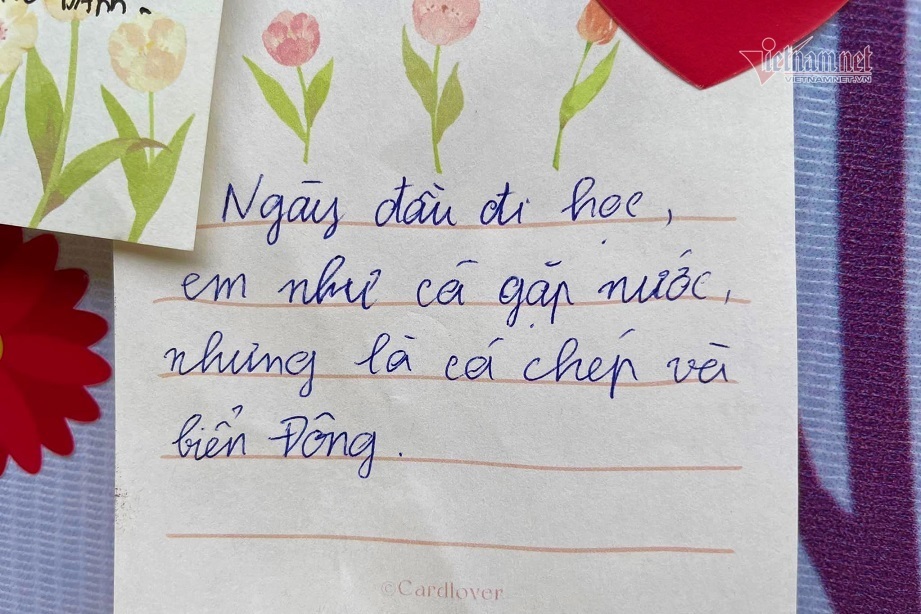 vietnamnet
VIETNAMNET.VN
Ngày đầu đi học,
em như cá gặp nước,
nhưng là cá chép và
biển Đông.
©Cardlover